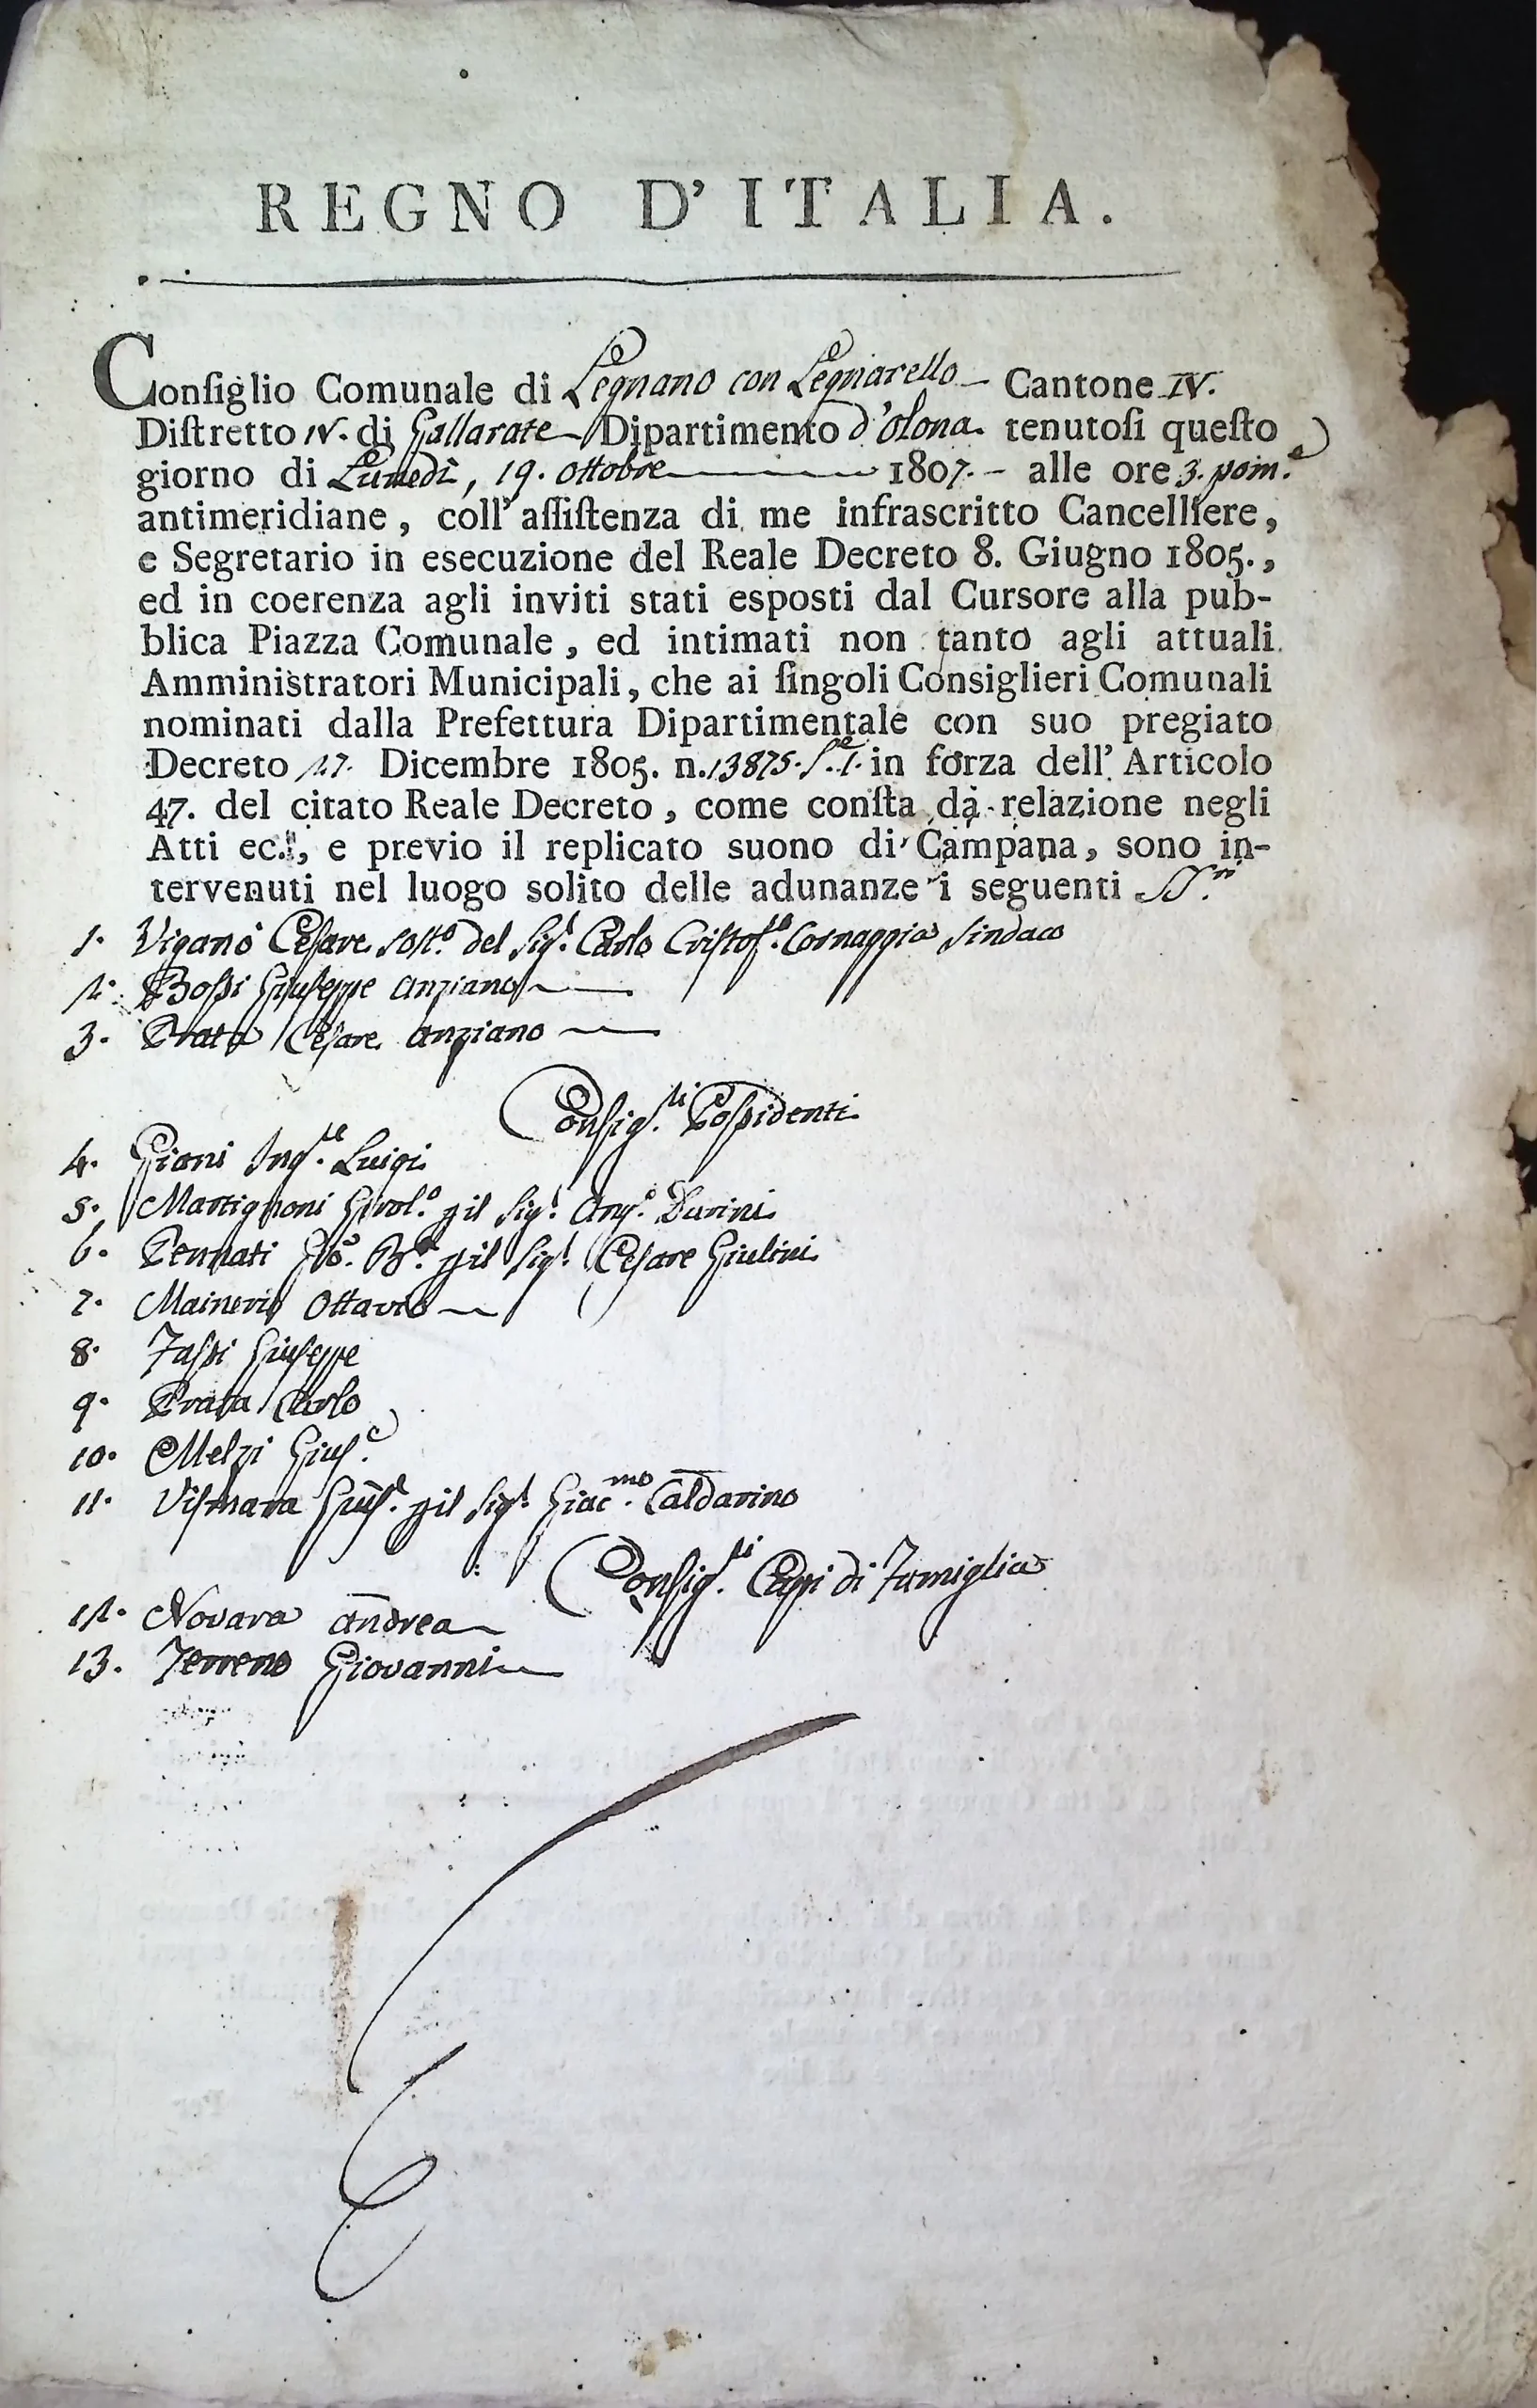 REGNO D'ITALIA.
Conſiglio Comunale di Legnano con Legnarello Cantone IV.
Diſtretto IV. di Gallarate Dipartimento d'Olona. tenutoſi queſto
giorno di Lunedì, 19. Ottobre 1807. - alle ore 3. pom.e
antimeridiane, coll' aſſiſtenza di me infrascritto Cancelliere,
e Segretario in esecuzione del Reale Decreto 8. Giugno 1805.,
ed in coerenza agli inviti stati esposti dal Cursore alla pub-
blica Piazza Comunale, ed intimati non tanto agli attuali
Amministratori Municipali, che ai ſingoli Consiglieri Comunali
nominati dalla Prefettura Dipartimentale con suo pregiato
Decreto 27. Dicembre 1805. n. 13875. in forza dell' Articolo
47. del citato Reale Decreto, come conſta da relazione negli
Atti ec., e previo il replicato suono di Campana, sono in-
tervenuti nel luogo solito delle adunanze i seguenti SS.ri
1. Viganò Cesare sost.o del Sig.r Carlo Cristof.o Cornaggia Sindaco
2. Bossi Giuseppe Anziano
3. Prata Cesare Anziano
Consig.ri Possidenti
4. Gioni Ing.re Luigi
5. Martignoni Girol.o pil Sig.r Ang.o Durini
6. Pennati Gio. B.a pil Sig.r Cesare Giulini
7. Mainerio Ottavio
8. Tassi Giuseppe
9. Prata Carlo
10. Melzi Gius.e
11. Vismara Gius.e pil Sig.r Giac.mo Caldarino
Consig.ri Capi di Famiglia
12. Novara Andrea
13. Terreno Giovanni